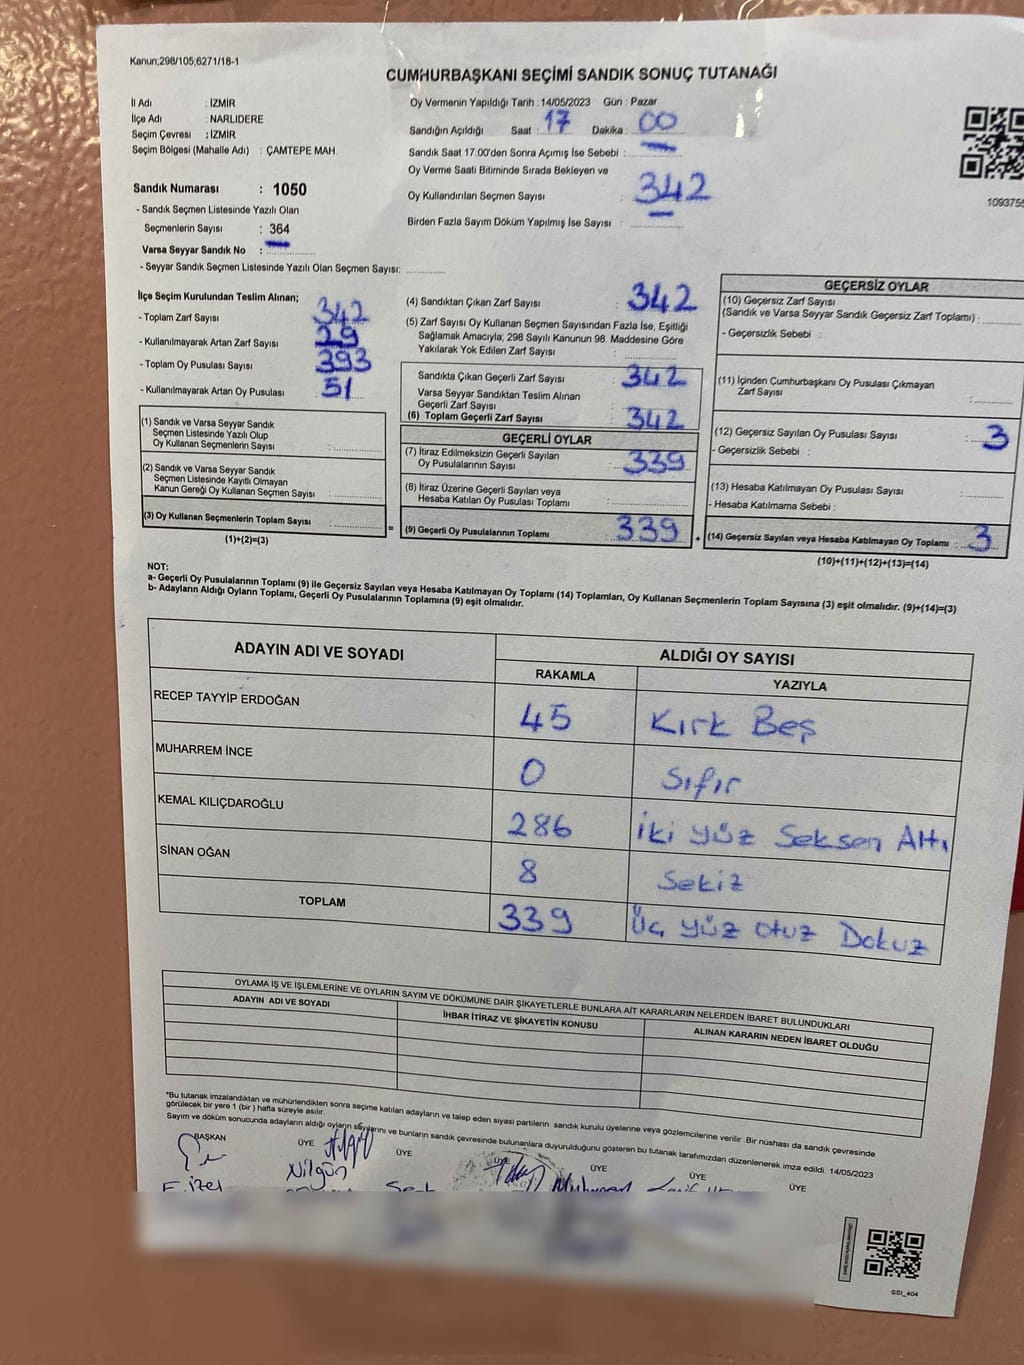 Kanun;298/105,6271/18-1
CUMHURBAŞKANI SEÇİMİ SANDIK SONUÇ TUTANAĞI
İl Adı : İZMİR
İlçe Adı : NARLIDERE
Seçim Çevresi : İZMİR
Seçim Bölgesi (Mahalle Adı) : ÇAMTEPE MAH.
Sandık Numarası : 1050
- Sandık Seçmen Listesinde Yazılı Olan
Seçmenlerin Sayısı : 364
Varsa Seyyar Sandık No :
- Seyyar Sandık Seçmen Listesinde Yazılı Olan Seçmen Sayısı:
Oy Vermenin Yapıldığı Tarih : 14/05/2023 Gün : Pazar
Sandığın Açıldığı Saat : 17 Dakika : 00
Sandık Saat 17:00'den Sonra Açımış İse Sebebi :
Oy Verme Saati Bitiminde Sırada Bekleyen ve
Oy Kullandırılan Seçmen Sayısı : 342
Birden Fazla Sayım Döküm Yapılmış İse Sayısı :
1093755
İlçe Seçim Kurulundan Teslim Alınan;
- Toplam Zarf Sayısı : 342
- Kullanılmayarak Artan Zarf Sayısı : 29
- Toplam Oy Pusulası Sayısı : 393
- Kullanılmayarak Artan Oy Pusulası : 51
(1) Sandık ve Varsa Seyyar Sandık
Seçmen Listesinde Yazılı Olup
Oy Kullanan Seçmenlerin Sayısı :
(2) Sandık ve Varsa Seyyar Sandık
Seçmen Listesinde Kayıtlı Olmayan
Kanun Gereği Oy Kullanan Seçmen Sayısı :
(3) Oy Kullanan Seçmenlerin Toplam Sayısı :
(1)+(2)=(3)
=
(4) Sandıktan Çıkan Zarf Sayısı : 342
(5) Zarf Sayısı Oy Kullanan Seçmen Sayısından Fazla İse, Eşitliği
Sağlamak Amacıyla; 298 Sayılı Kanunun 98. Maddesine Göre
Yakılarak Yok Edilen Zarf Sayısı :
Sandıkta Çıkan Geçerli Zarf Sayısı : 342
Varsa Seyyar Sandıktan Teslim Alınan
Geçerli Zarf Sayısı
(6) Toplam Geçerli Zarf Sayısı : 342
GEÇERLİ OYLAR
(7) İtiraz Edilmeksizin Geçerli Sayılan
Oy Pusulalarının Sayısı : 339
(8) İtiraz Üzerine Geçerli Sayılan veya
Hesaba Katılan Oy Pusulası Toplamı :
(9) Geçerli Oy Pusulalarının Toplamı : 339
+
GEÇERSİZ OYLAR
(10) Geçersiz Zarf Sayısı
(Sandık ve Varsa Seyyar Sandık Geçersiz Zarf Toplamı) :
- Geçersizlik Sebebi :
(11) İçinden Cumhurbaşkanı Oy Pusulası Çıkmayan
Zarf Sayısı :
(12) Geçersiz Sayılan Oy Pusulası Sayısı : 3
- Geçersizlik Sebebi :
(13) Hesaba Katılmayan Oy Pusulası Sayısı :
- Hesaba Katılmama Sebebi :
(14) Geçersiz Sayılan veya Hesaba Katılmayan Oy Toplamı : 3
(10)+(11)+(12)+(13)=(14)
NOT:
a- Geçerli Oy Pusulalarının Toplamı (9) ile Geçersiz Sayılan veya Hesaba Katılmayan Oy Toplamı (14) Toplamları, Oy Kullanan Seçmenlerin Toplam Sayısına (3) eşit olmalıdır. (9)+(14)=(3)
b- Adayların Aldığı Oyların Toplamı, Geçerli Oy Pusulalarının Toplamına (9) eşit olmalıdır.
ADAYIN ADI VE SOYADI ALDIĞI OY SAYISI
RAKAMLA YAZIYLA
RECEP TAYYİP ERDOĞAN 45 Kırk Beş
MUHARREM İNCE 0 Sıfır
KEMAL KILIÇDAROĞLU 286 İki yüz Seksen Altı
SİNAN OĞAN 8 Sekiz
TOPLAM 339 Üç yüz otuz Dokuz
OYLAMA İŞ VE İŞLEMLERİNE VE OYLARIN SAYIM VE DÖKÜMÜNE DAİR ŞİKAYETLERLE BUNLARA AİT KARARLARIN NELERDEN İBARET BULUNDUKLARI
ADAYIN ADI VE SOYADI İHBAR İTİRAZ VE ŞİKAYETİN KONUSU ALINAN KARARIN NEDEN İBARET OLDUĞU
*Bu tutanak imzalandıktan ve mühürlendikten sonra seçime katılan adayların ve talep eden siyasi partilerin sandık kurulu üyelerine veya gözlemcilerine verilir. Bir nüshası da sandık çevresinde
görülecek bir yere 1 (bir ) hafta süreyle asılır.
Sayım ve döküm sonucunda adayların aldığı oyların sayılarını ve bunların sandık çevresinde bulunanlara duyurulduğunu gösteren bu tutanak tarafımızdan düzenlenerek imza edildi. 14/05/2023
BAŞKAN ÜYE ÜYE ÜYE ÜYE ÜYE ÜYE
Nilgün
SSI_404